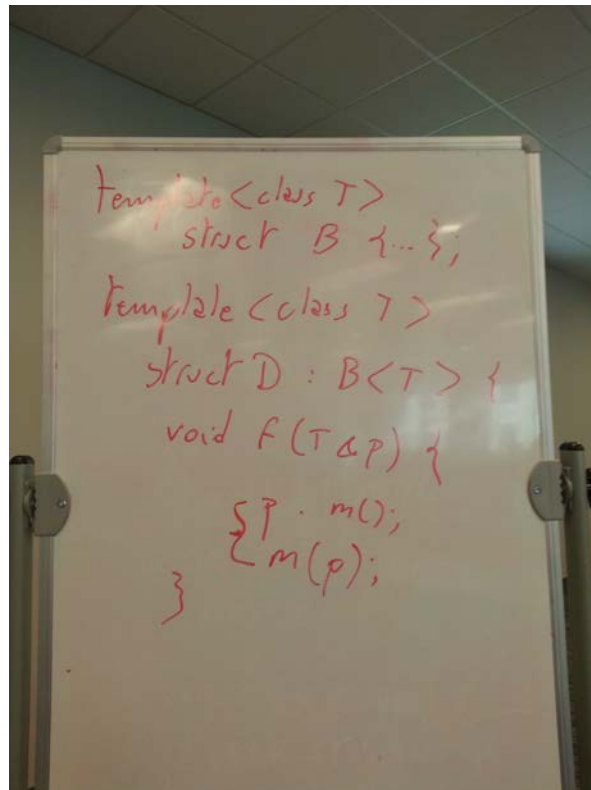 template<class T>
struct B {...};
template<class T>
struct D : B<T> {
void f(T &p) {
p . m();
m(p);
}